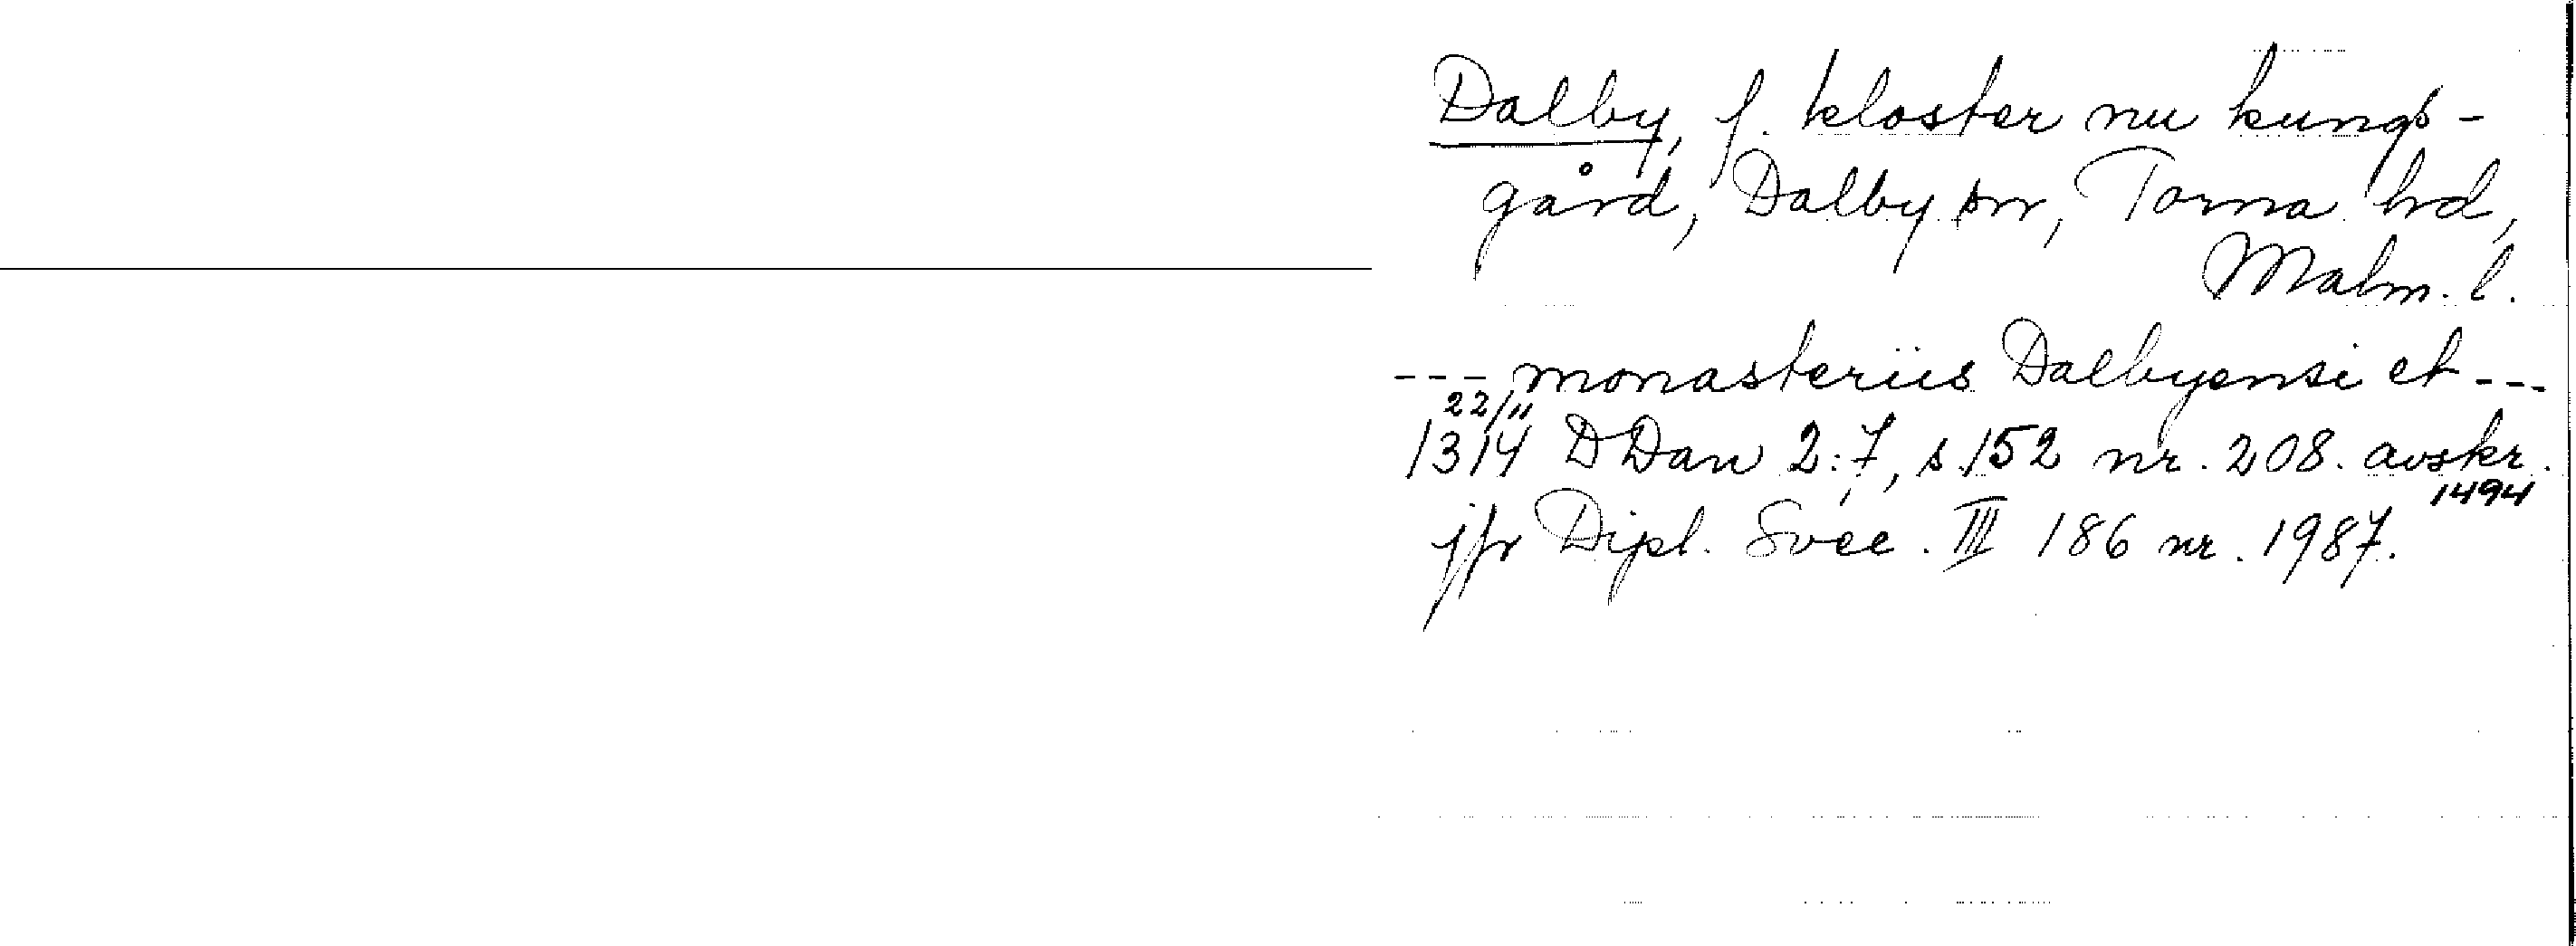 Dalby, f. kloster nu kungs-
gård, Dalby sn, Torna hd,
Malm. l.
--- monasteriis Dalbyensi et ---
22/11
1314 DDan 2:7, s. 152 nr. 208. avskr.
1494
jfr Dipl. Svec. III 186 nr. 1987.